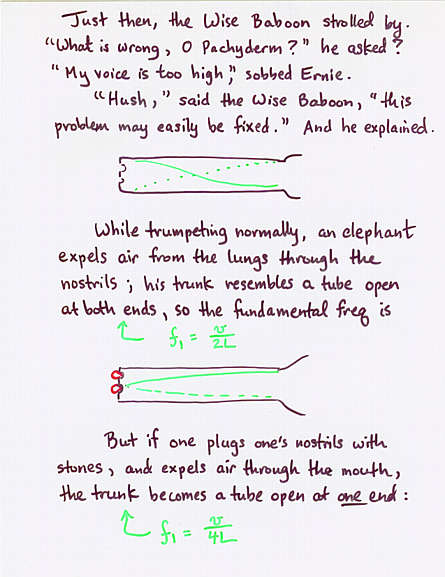 Just then, the Wise Baboon strolled by.
"What is wrong, O Pachyderm?" he asked?
"My voice is too high," sobbed Ernie.
"Hush," said the Wise Baboon, "this
problem may easily be fixed." And he explained.
While trumpeting normally, an elephant
expels air from the lungs through the
nostrils; his trunk resembles a tube open
at both ends, so the fundamental freq is
f₁ = v/2L
But if one plugs one's nostrils with
stones, and expels air through the mouth,
the trunk becomes a tube open at one end:
f₁ = v/4L